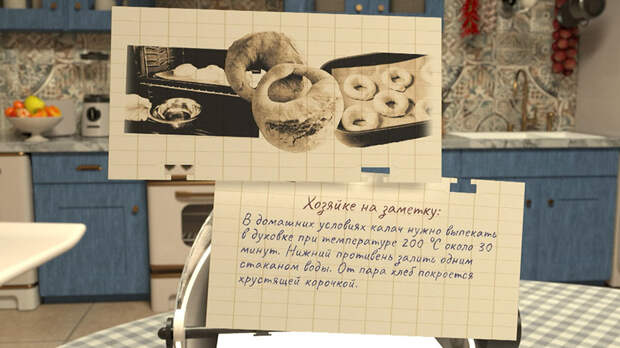 Хозяйке на заметку:
В домашних условиях калач нужно выпекать
в духовке при температуре 200 °C около 30
минут. Нижний противень залить одним
стаканом воды. От пара хлеб покроется
хрустящей корочкой.